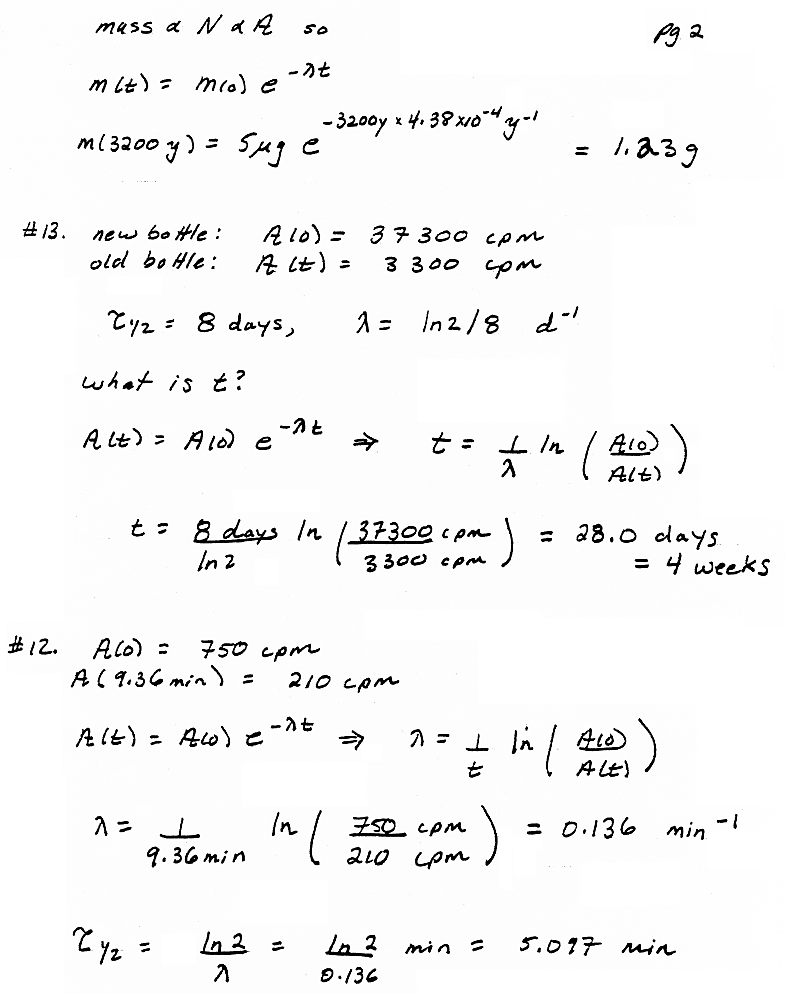 mass α N α A so pg 2
m(t) = m(o) e^-λt
m(3200 y) = 5μg e^-3200y × 4.38×10^-4 y^-1 = 1.23g
#13. new bottle: A(0) = 37300 cpm
old bottle: A(t) = 3300 cpm
τ1/2 = 8 days, λ = ln2/8 d^-1
what is t?
A(t) = A(0) e^-λt ⇒ t = 1/λ ln (A(0)/A(t))
t = 8 days/ln 2 ln (37300 cpm/3300 cpm) = 28.0 days
= 4 weeks
#12. A(0) = 750 cpm
A(9.36 min) = 210 cpm
A(t) = A(0) e^-λt ⇒ λ = 1/t ln (A(0)/A(t))
λ = 1/9.36 min ln (750 cpm/210 cpm) = 0.136 min^-1
τ1/2 = ln 2/λ = ln 2/0.136 min = 5.097 min